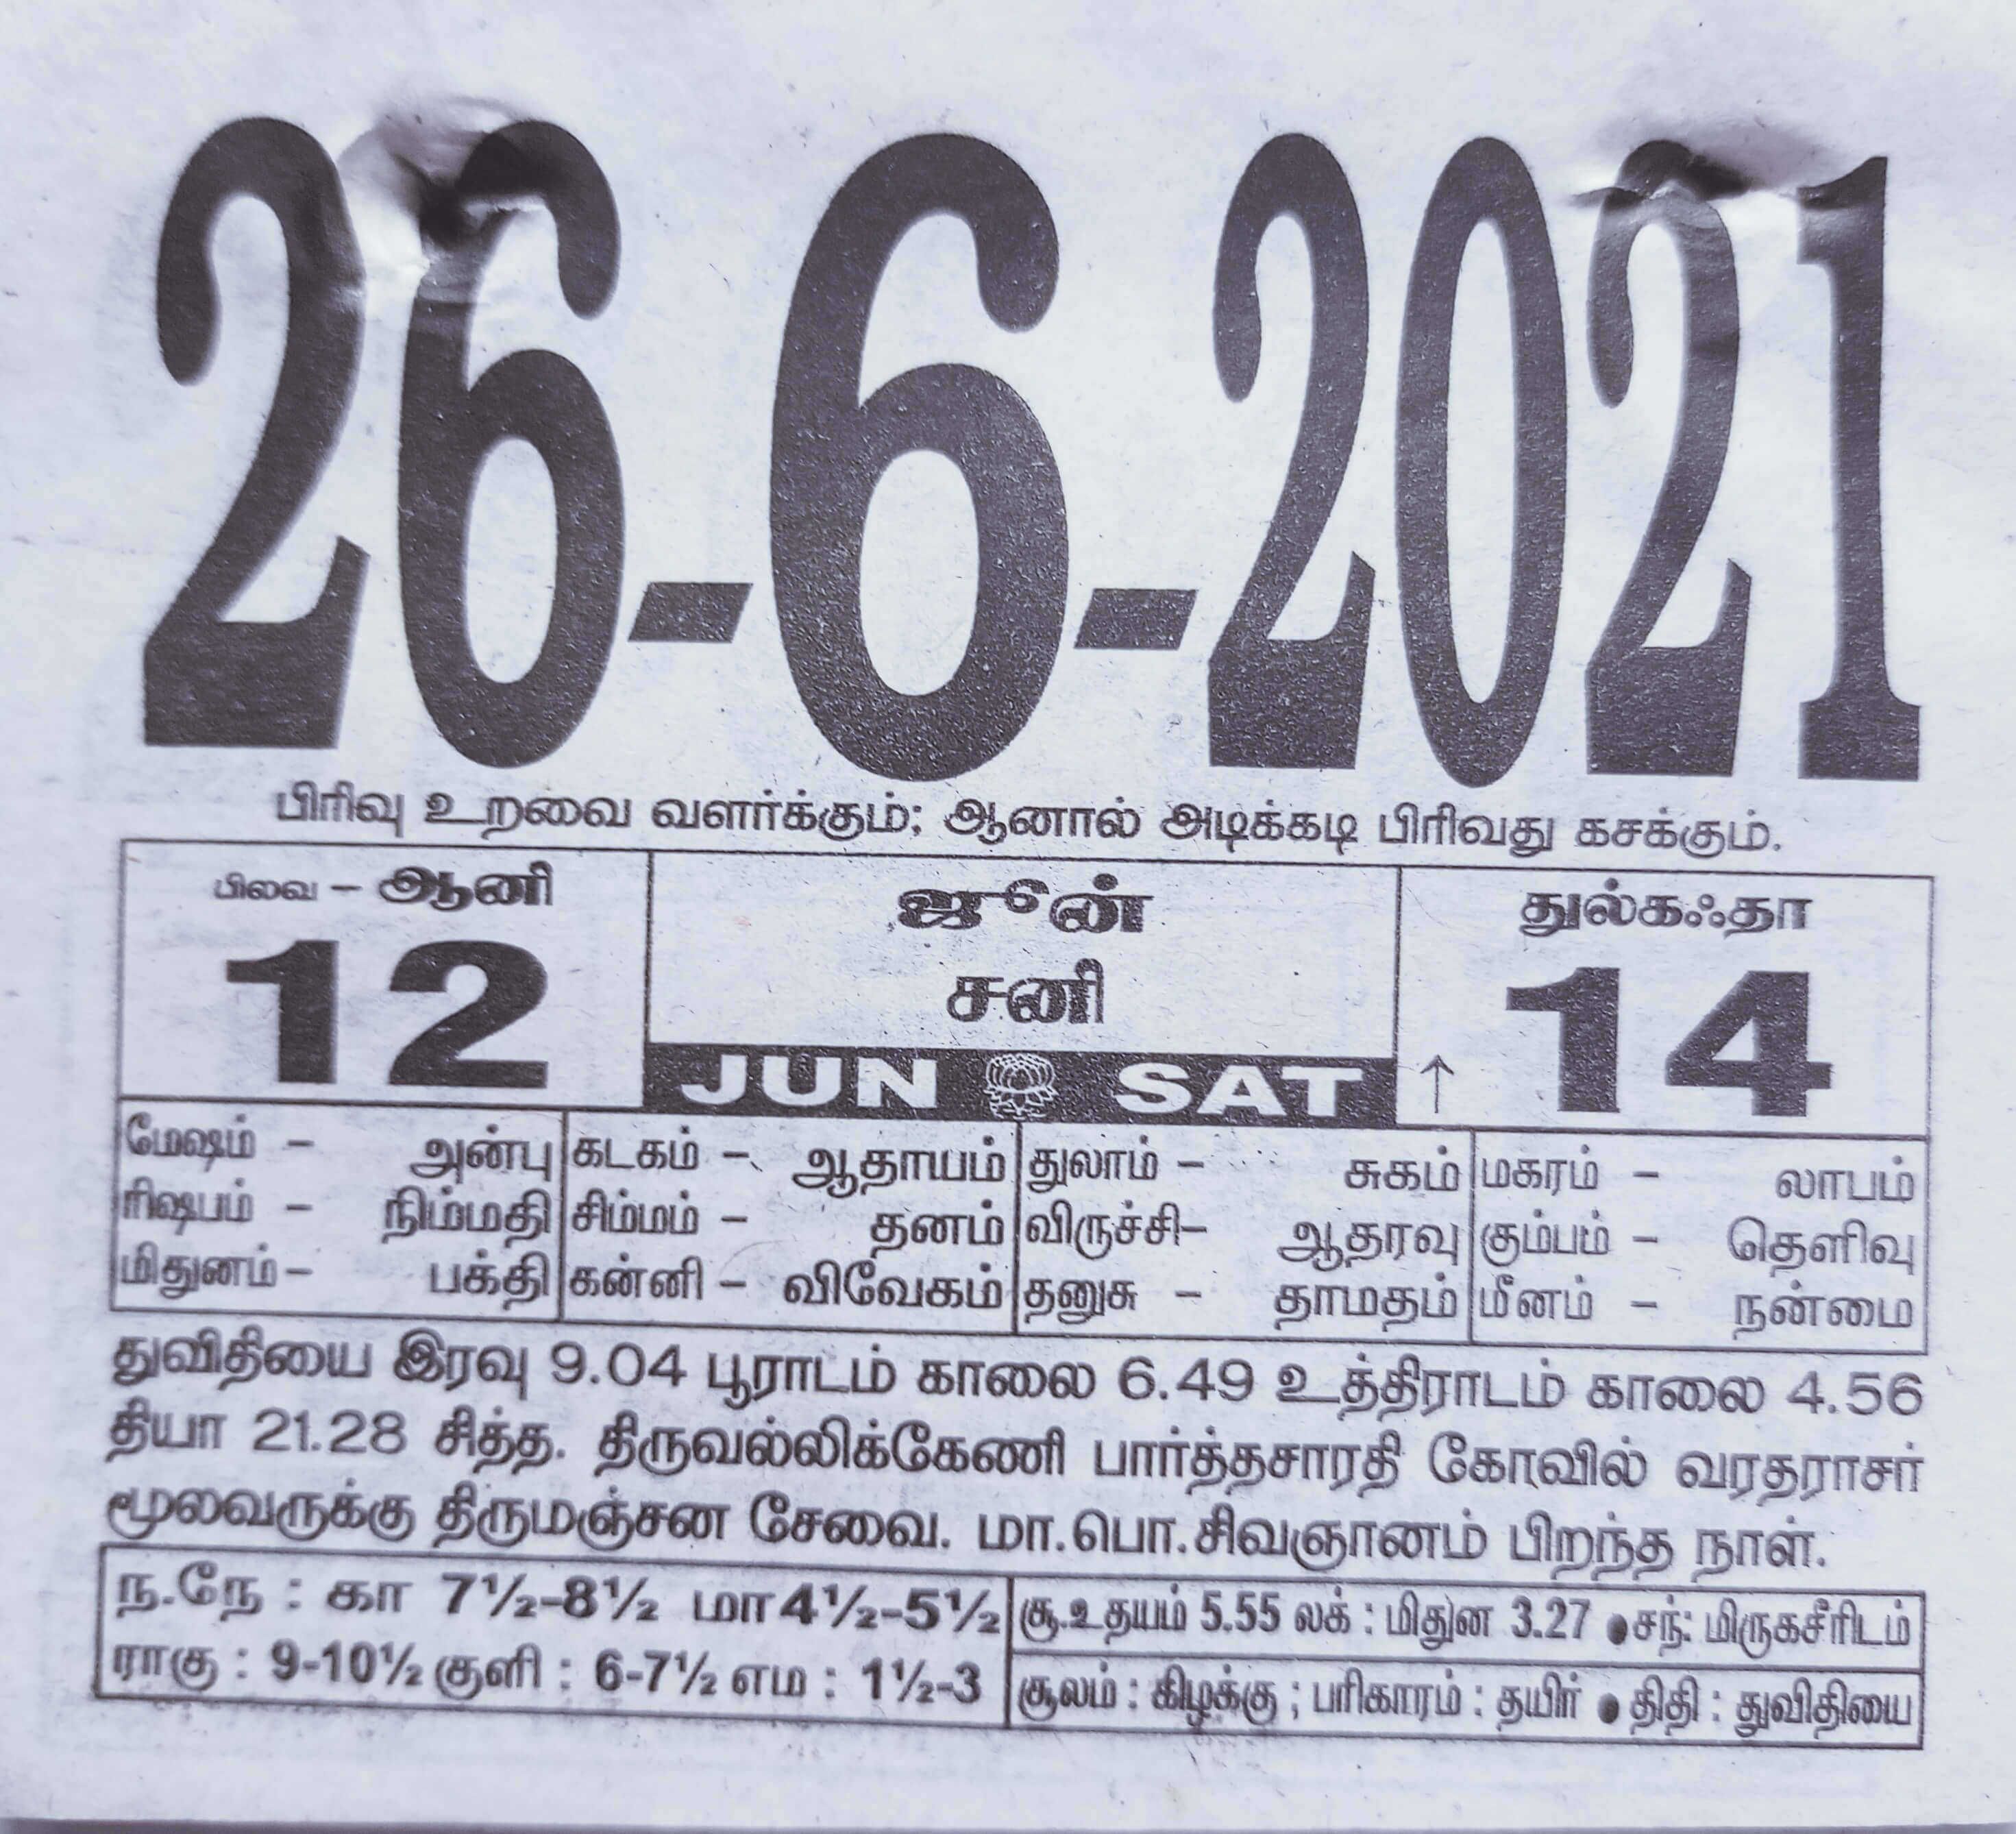 26-6-2021
பிரிவு உறவை வளர்க்கும்; ஆனால் அடிக்கடி பிரிவது கசக்கும்.
பிலவ – ஆனி
12
ஜூன்
சனி
JUN SAT
துல்கஃதா
↑ 14
மேஷம் – அன்பு
ரிஷபம் – நிம்மதி
மிதுனம் – பக்தி
கடகம் – ஆதாயம்
சிம்மம் – தனம்
கன்னி – விவேகம்
துலாம் – சுகம்
விருச்சி– ஆதரவு
தனுசு – தாமதம்
மகரம் – லாபம்
கும்பம் – தெளிவு
மீனம் – நன்மை
துவிதியை இரவு 9.04 பூராடம் காலை 6.49 உத்திராடம் காலை 4.56
தியா 21.28 சித்த. திருவல்லிக்கேணி பார்த்தசாரதி கோவில் வரதராசர்
மூலவருக்கு திருமஞ்சன சேவை. மா.பொ.சிவஞானம் பிறந்த நாள்.
ந.நே : கா 7½-8½ மா 4½-5½
ராகு : 9-10½ குளி : 6-7½ எம : 1½-3
சூ.உதயம் 5.55 லக் : மிதுன 3.27 ●சந்: மிருகசீரிடம்
சூலம் : கிழக்கு ; பரிகாரம் : தயிர் ● திதி : துவிதியை